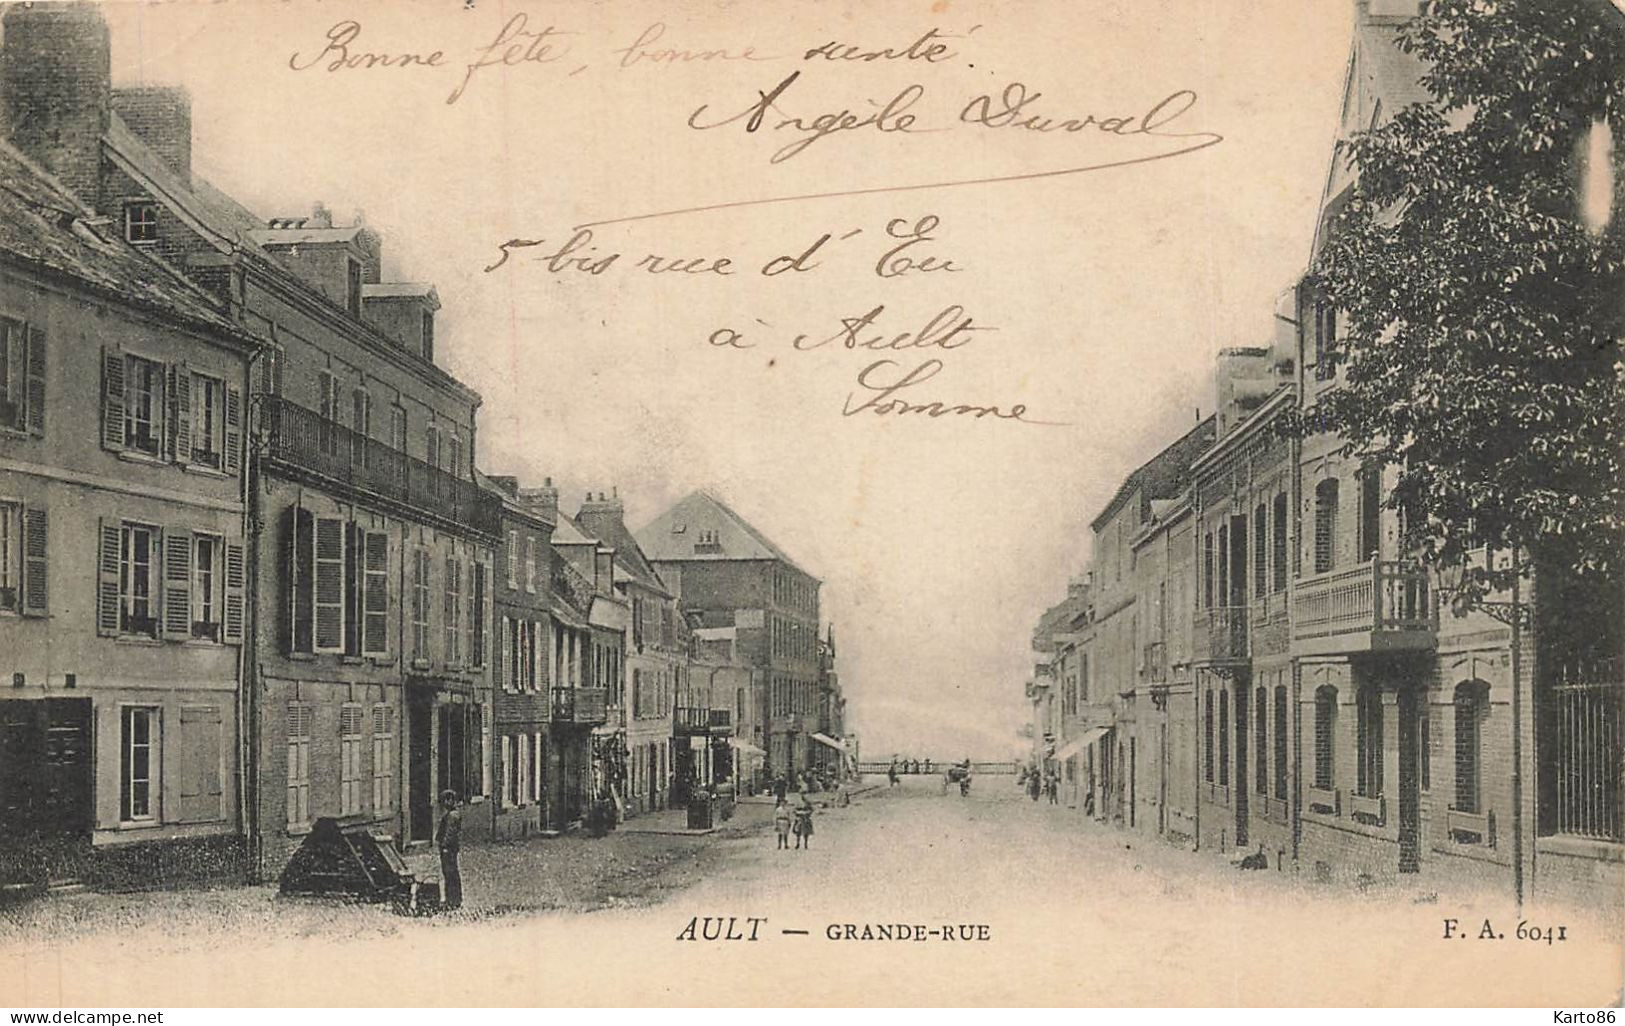 Bonne fête, bonne santé.
Angèle Duval
5 bis rue d'Eu
à Ault
Somme
AULT — GRANDE-RUE
F. A. 6041
www.delcampe.net
Karto86